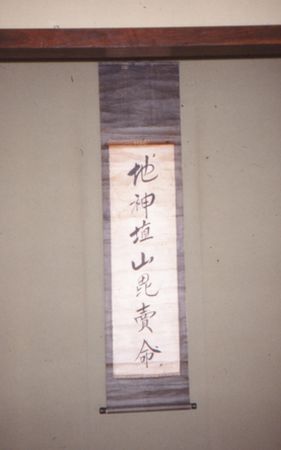 地神埴山毘賣命